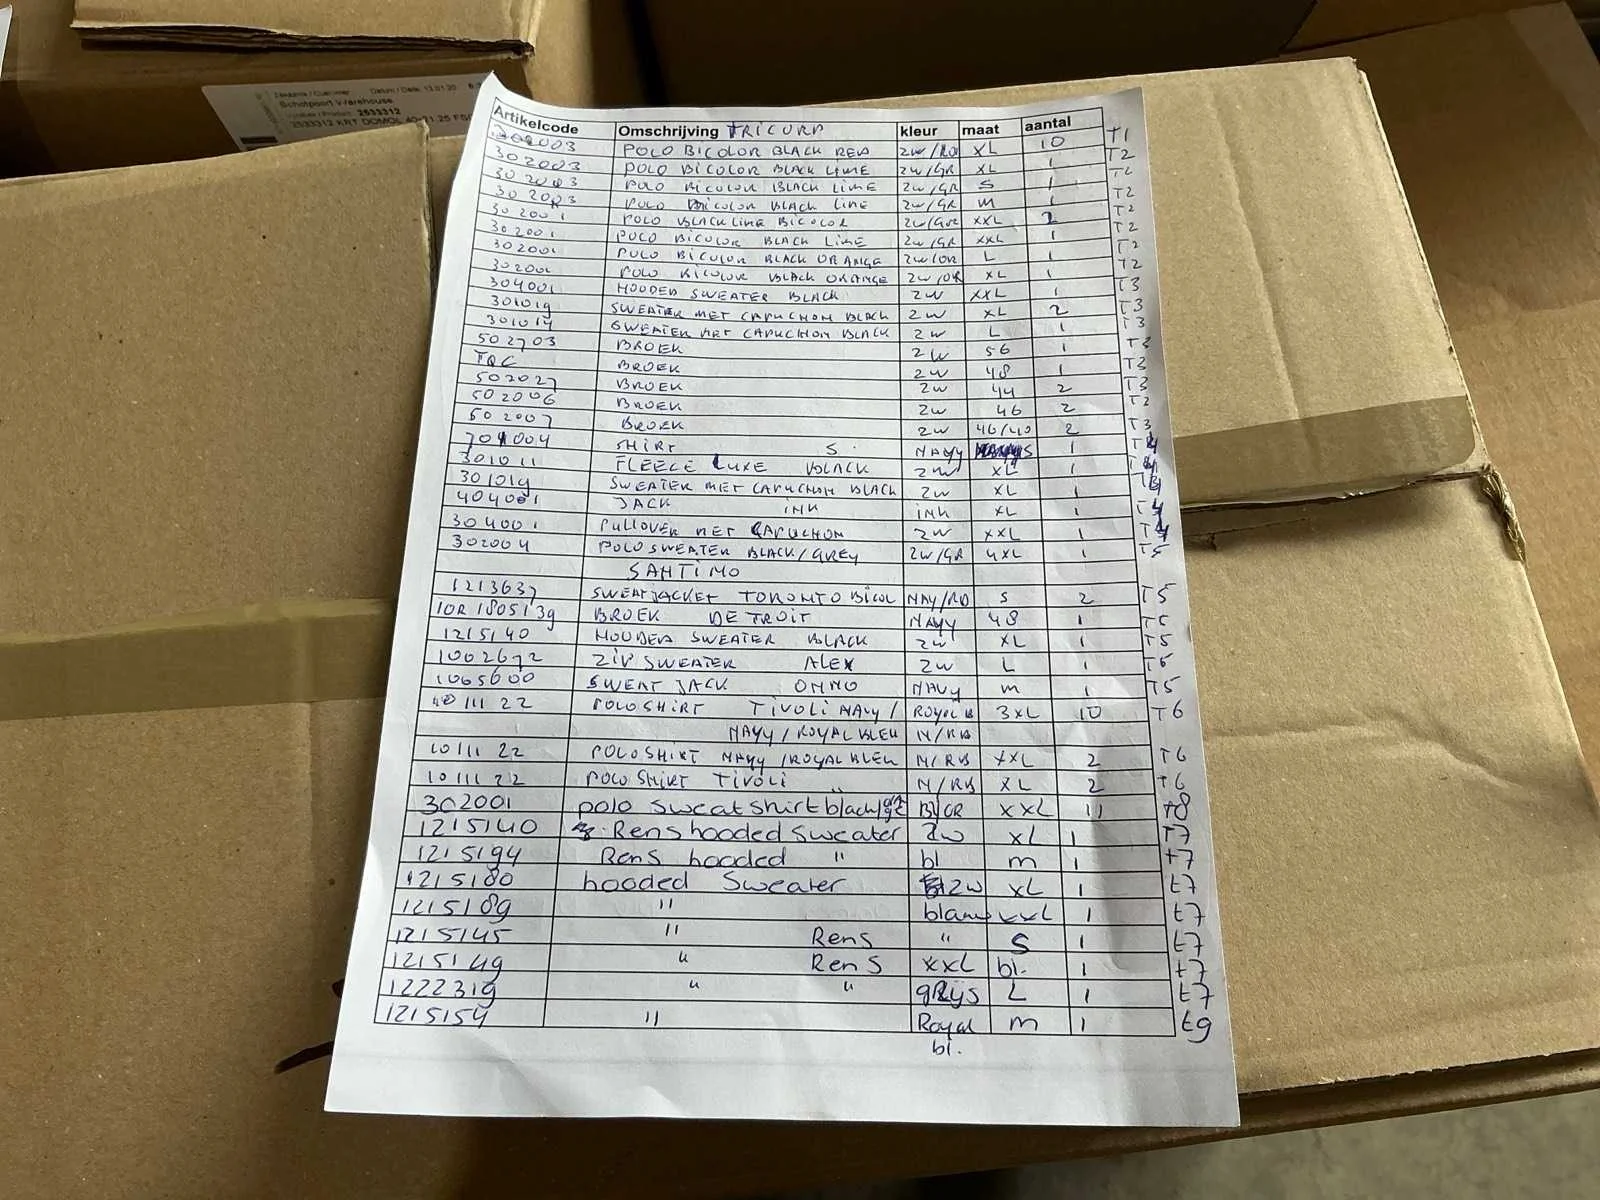 Datum / Date: 13.01.20
Schotpoort Warehouse
2533312
2533312 KRT DOMOL
Artikelcode Omschrijving TRICORP kleur maat aantal
302003 POLO BICOLOR BLACK RED ZW/RO XL 10 T1
302003 POLO BICOLOR BLACK LIME ZW/GR XL 1 T2
302003 POLO BICOLOR BLACK LIME ZW/GR S 1 T2
302003 POLO BICOLOR BLACK LIME ZW/GR M 1 T2
302001 POLO BLACK LIME BICOLOR ZW/GR XXL 2 T2
302001 POLO BICOLOR BLACK LIME ZW/GR XXL 1 T2
302001 POLO BICOLOR BLACK ORANGE ZW/OR L 1 T2
302001 POLO BICOLOR BLACK ORANGE ZW/OR XL 1 T2
304001 HOODED SWEATER BLACK ZW XXL 1 T3
301019 SWEATER MET CAPUCHON BLACK ZW XL 2 T3
301019 SWEATER MET CAPUCHON BLACK ZW L 1 T3
502703 BROEK ZW 56 1 T3
BROEK ZW 48 1 T3
502027 BROEK ZW 44 2 T3
502006 BROEK ZW 46 2 T3
502007 BROEK ZW 46/40 2 T3
701004 SHIRT S. NAVY 1 T4
301011 FLEECE LUXE BLACK ZW XL 1 T4
301019 SWEATER MET CAPUCHON BLACK ZW XL 1
404001 JACK INK INK XL 1 T4
304001 PULLOVER MET CAPUCHON ZW XXL 1 T4
302004 POLO SWEATER BLACK/GREY ZW/GR 4XL 1 T5
SANTINO
1213637 SWEATJACKET TORONTO BICOL NAY/RD S 2 T5
10R1805139 BROEK DETROIT NAVY 48 1 T5
1215140 HOODED SWEATER BLACK ZW XL 1 T5
1002672 ZIP SWEATER ALEX ZW L 1 T5
1065600 SWEAT JACK ONNO NAVY M 1 T5
1011122 POLOSHIRT TIVOLI NAVY / ROYAL B 3XL 10 T6
NAVY / ROYAL BLEU N/RB
1011122 POLOSHIRT NAVY / ROYAL BLEU N/RB XXL 2 T6
1011122 POLO SHIRT TIVOLI " N/RB XL 2 T6
302001 polo sweatshirt black/ Bl/GR XXL 11 t8
1215140 Rens hooded Sweater Zw xL 1 T7
1215194 Rens hooded " bl m 1 t7
1215180 hooded Sweater zw xL 1 t7
1215189 " blauw xxL 1 t7
1215145 " Rens " S 1 t7
1215149 " Rens xxL bl. 1 t7
1222319 " " gRijs L 1 t7
1215154 " Royal m 1 t9
bl.